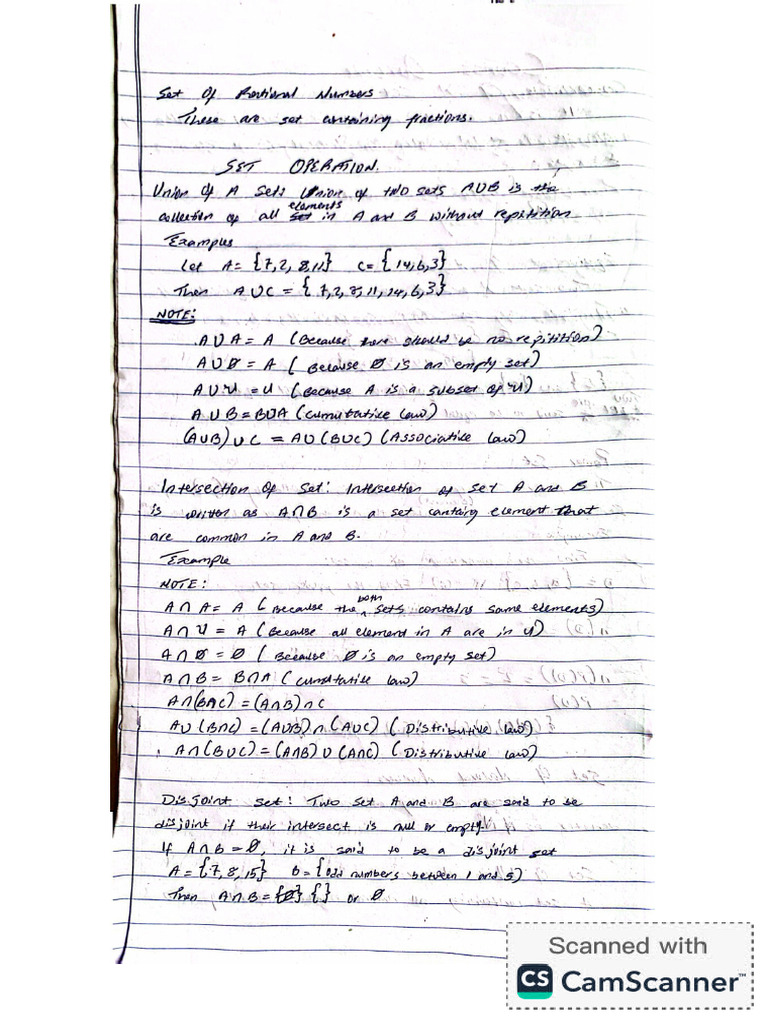 Set Of Rational Numbers
These are set containing fractions.
SET OPERATION.
Union of A Set: Union of two sets A∪B is the
elements
collection of all set in A and B without repitition
Examples
Let A= {7,2,8,11} C= {14,6,3}
Then A∪C = {7,2,8,11,14,6,3}
NOTE:
A∪A = A (Because there should be no repitition)
A∪∅ = A (Because ∅ is an empty set)
A∪U = U (Because A is a subset of U)
A∪B = B∪A (cumutative law)
(A∪B)∪C = A∪(B∪C) (Associative law)
Intersection Of Set: Intersection of set A and B
is written as A∩B is a set containg element that
are common in A and B.
Example
NOTE:
both
A∩A = A (Because the sets contains same elements)
A∩U = A (Because all element in A are in U)
A∩∅ = ∅ (Because ∅ is an empty set)
A∩B = B∩A (cumutative law)
A∩(B∩C) = (A∩B)∩C
A∪(B∩C) = (A∪B)∩(A∪C) (Distributive law)
A∩(B∪C) = (A∩B)∪(A∩C) (Distributive law)
Disjoint set: Two set A and B are said to be
disjoint if their intersect is null or empty.
If A∩B = ∅, it is said to be a disjoint set
A = {7,8,15} B = {odd numbers between 1 and 5)
Then A∩B = {∅} {} or ∅
Scanned with
CS CamScanner™